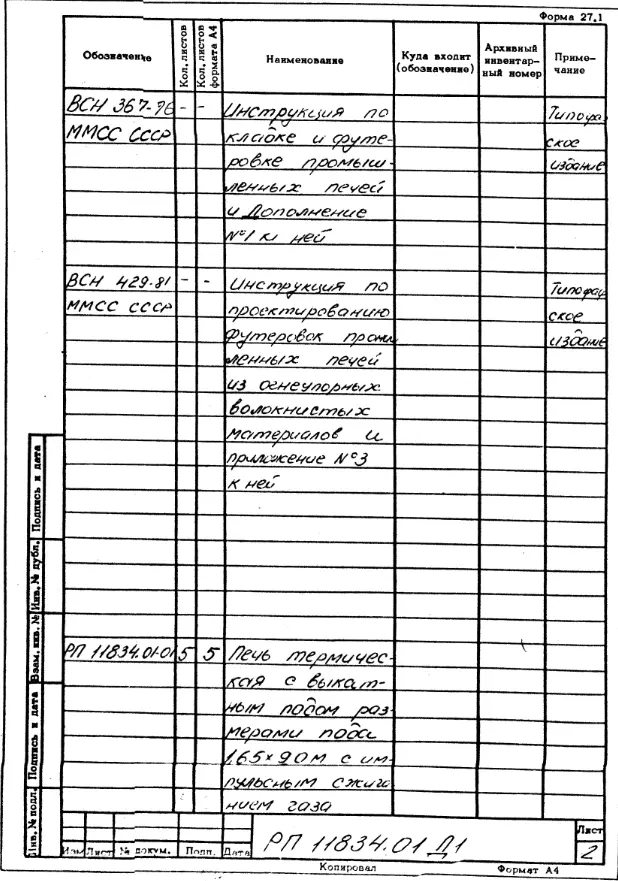 Форма 27.1
Обозначение
Кол. листов
Кол. листов формата А4
Наименование
Куда входит (обозначение)
Архивный инвентарный номер
Примечание
ВСН 367-76 - - Инструкция по Типогра
ММСС СССР кладке и футе- ское
ровке промыш- издание
ленных печей
и Дополнение
№1 к ней
ВСН 429-81 - - Инструкция по Типограф
ММСС СССР проектированию ское
футеровок пром издание
ленных печей
из огнеупорных
волокнистых
материалов и
приложение №3
к ней
РП 11834.01-01 5 5 Печь термичес-
кая с выкат-
ным подом раз-
мерами пода
1,65×2,0м с им-
пульсным сжига
нием газа
Инв. № подл.
Подпись и дата
Взам. инв. №
Инв. № дубл.
Подпись и дата
Изм Лист № докум. Подп. Дата
РП 11834.01 Д1
Лист
2
Копировал Формат А4